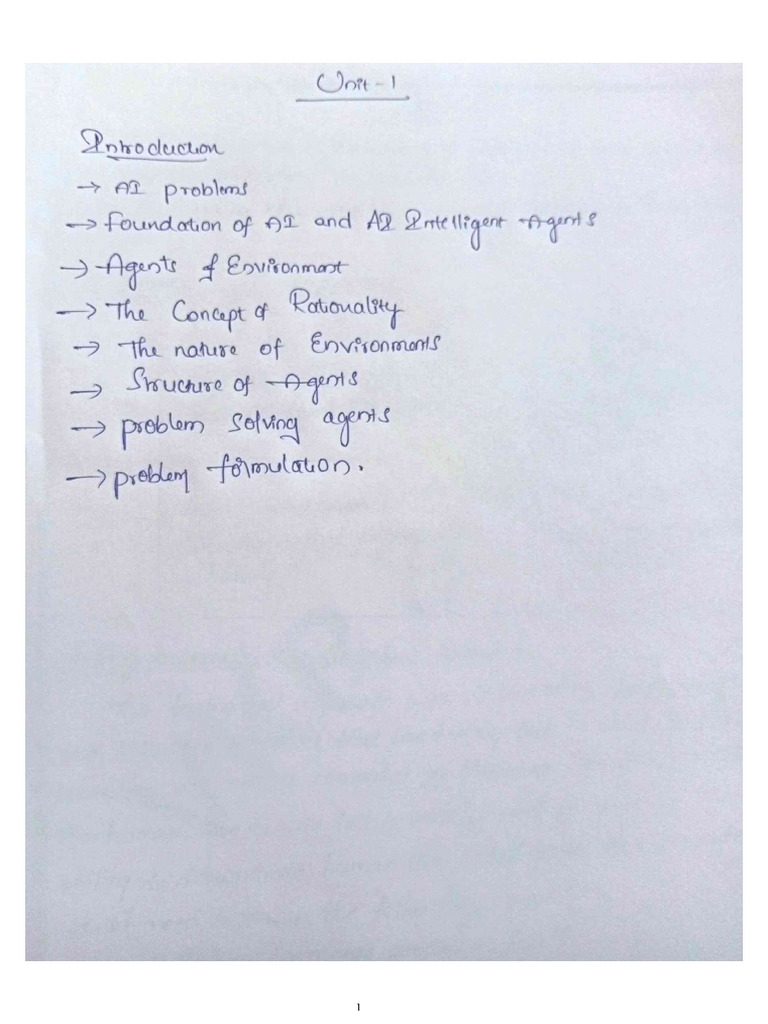 Unit-1
Introduction
→ AI problems
→ foundation of AI and AI Intelligent Agents
→ Agents & Environment
→ The Concept of Rationality
→ The nature of Environments
→ Structure of Agents
→ problem solving agents
→ problem formulation.
1